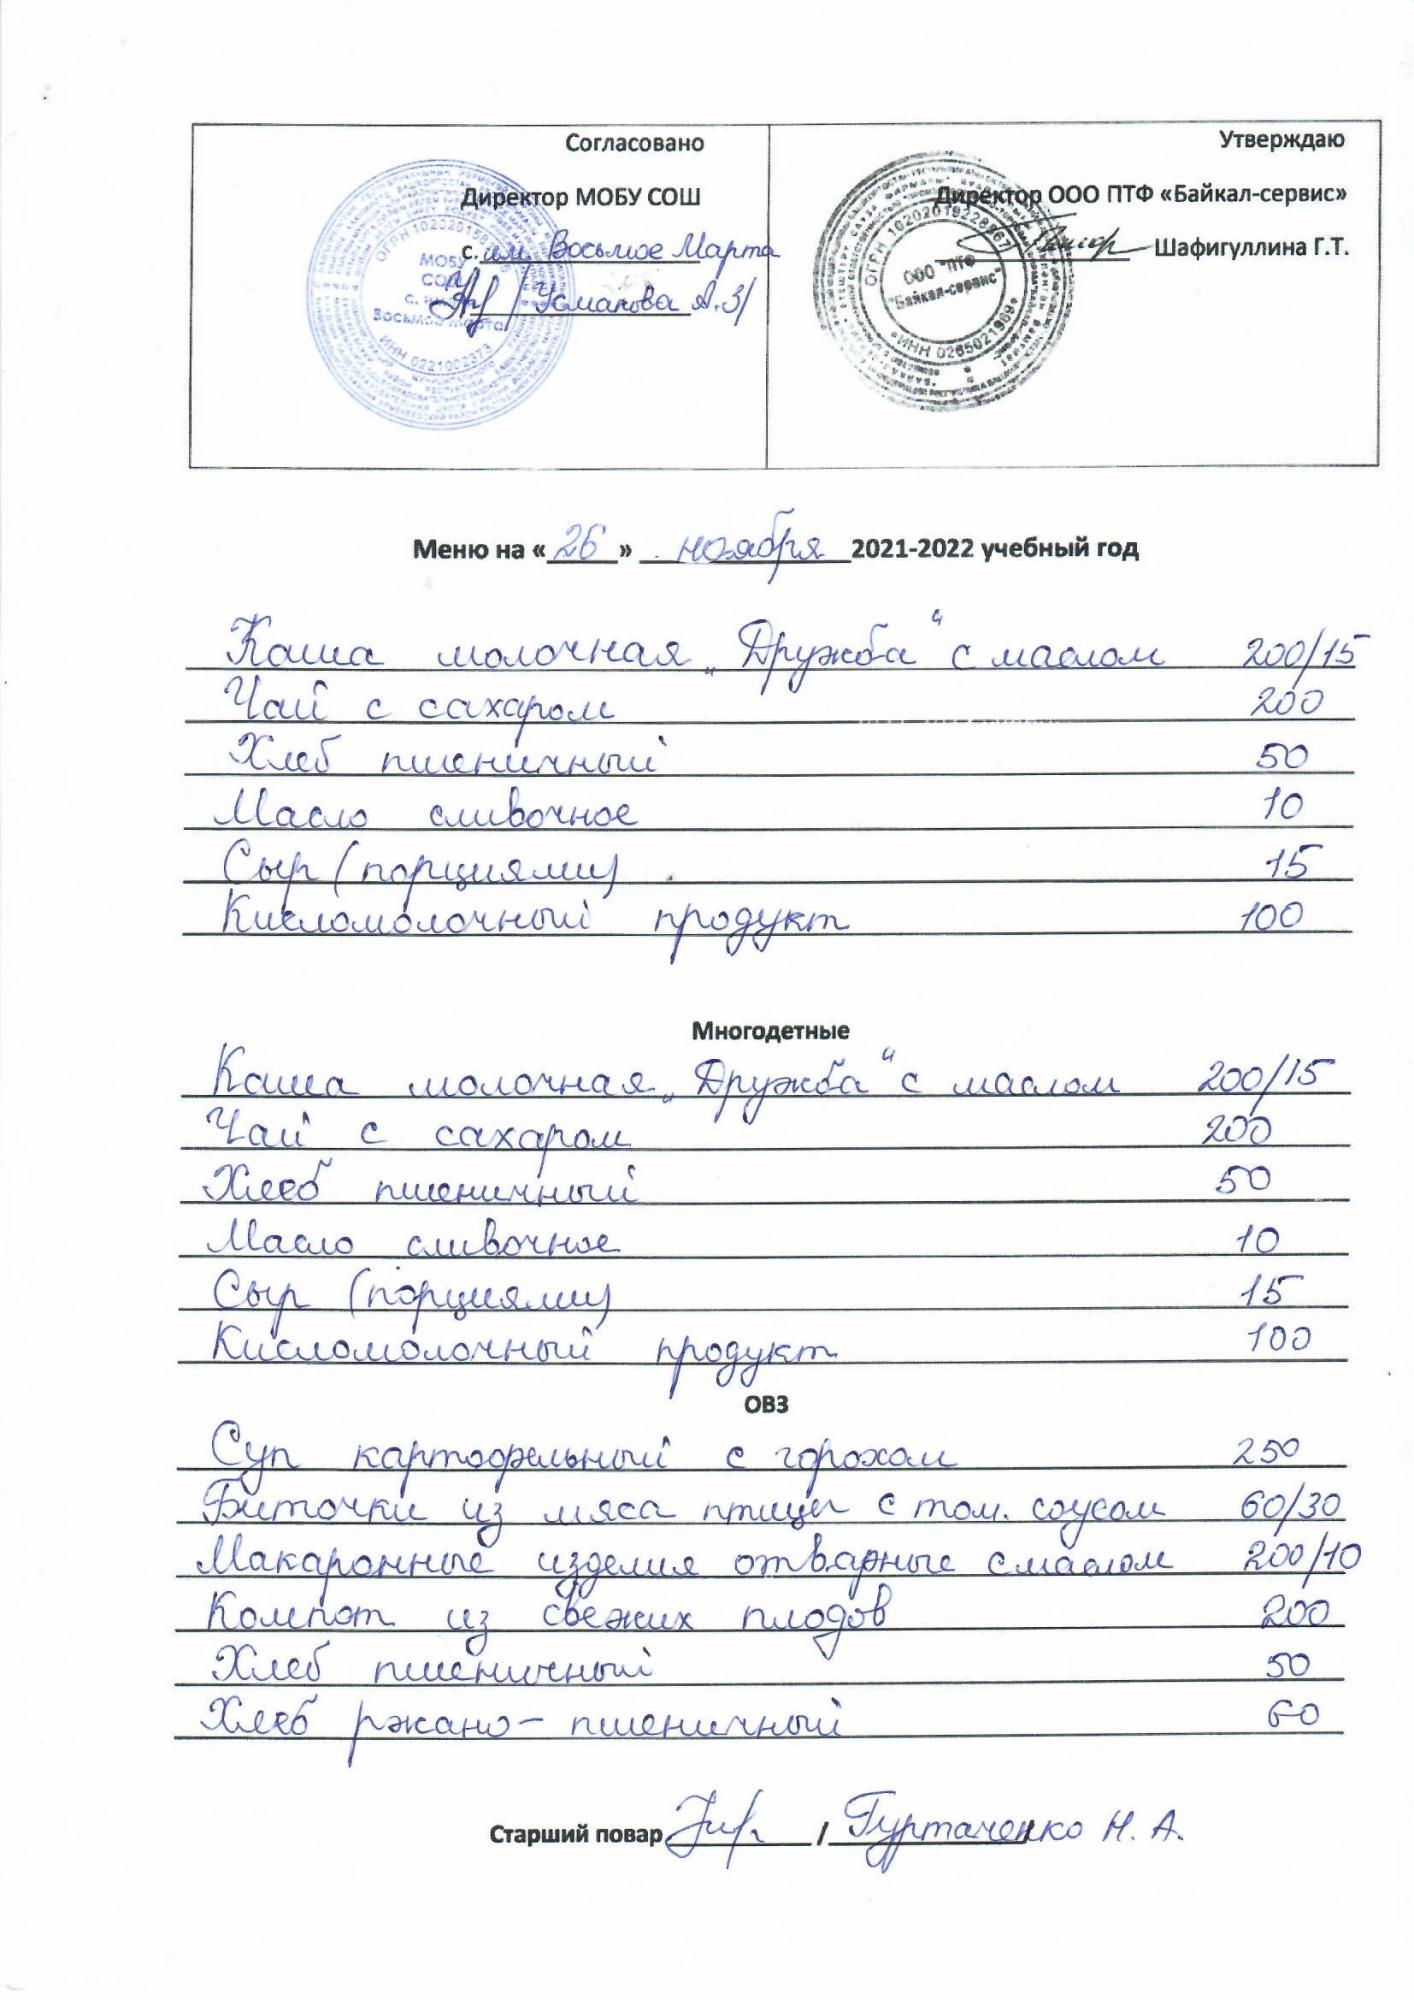 Согласовано
Директор МОБУ СОШ
с. им. Восьмое Марта
/ Усманова А.З/
ОГРН 10202015
МОБУ
СОШ
с. им.
Восьмое Марта
ИНН 0221002373
Утверждаю
Директор ООО ПТФ «Байкал-сервис»
Шафигуллина Г.Т.
ООО "ПТФ
"Байкал-сервис"
ИНН 0265021969
Меню на « 26 » ноября 2021-2022 учебный год
Каша молочная „Дружба“ с маслом 200/15
Чай с сахаром 200
Хлеб пшеничный 50
Масло сливочное 10
Сыр (порциями) 15
Кисломолочный продукт 100
Многодетные
Каша молочная „Дружба“ с маслом 200/15
Чай с сахаром 200
Хлеб пшеничный 50
Масло сливочное 10
Сыр (порциями) 15
Кисломолочный продукт 100
ОВЗ
Суп картофельный с горохом 250
Биточки из мяса птицы с том. соусом 60/30
Макаронные изделия отварные с маслом 200/10
Компот из свежих плодов 200
Хлеб пшеничный 50
Хлеб ржано-пшеничный 60
Старший повар / Гуртаченко Н. А.